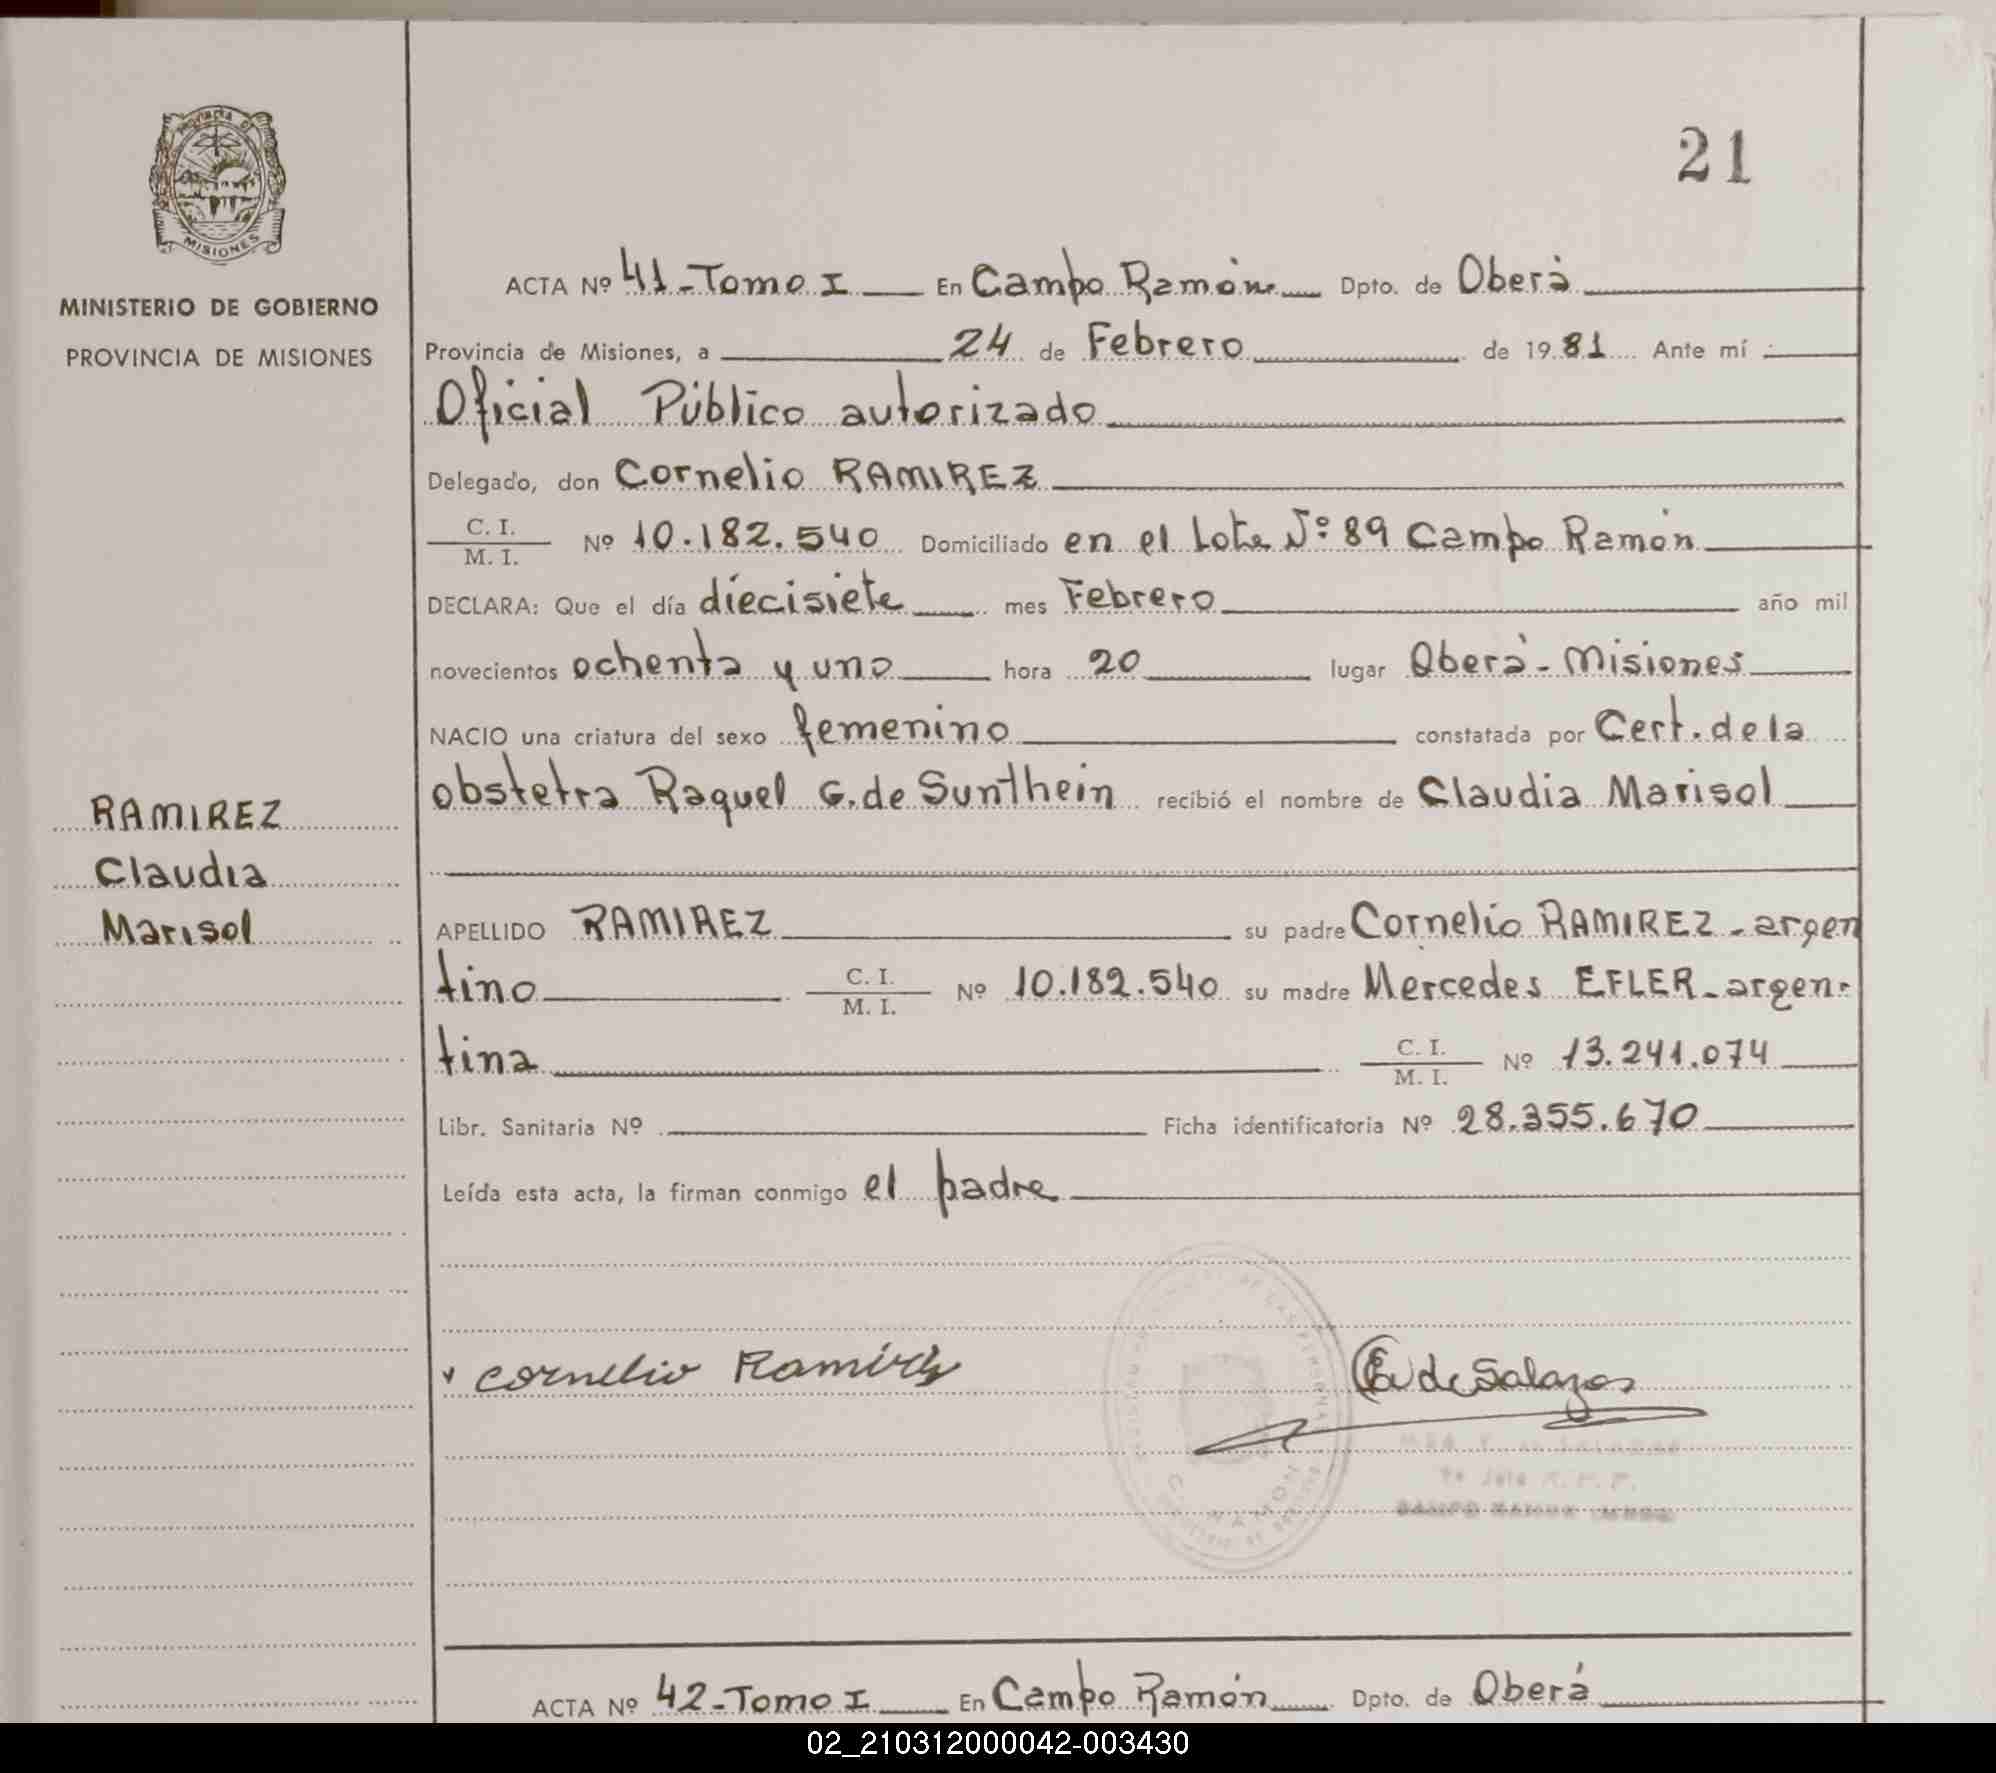 21
MISIONES
MINISTERIO DE GOBIERNO
PROVINCIA DE MISIONES
ACTA Nº 41-Tomo I En Campo Ramón Dpto. de Oberá
Provincia de Misiones, a 24 de Febrero de 1981 Ante mí
Oficial Público autorizado
Delegado, don Cornelio RAMIREZ
C. I.
M. I. Nº 10.182.540 Domiciliado en el Lote Nº 89 Campo Ramón
DECLARA: Que el día diecisiete mes Febrero año mil
novecientos ochenta y uno hora 20 lugar Oberá - Misiones
NACIO una criatura del sexo femenino constatada por Cert. de la
obstetra Raquel G. de Sunthein recibió el nombre de Claudia Marisol
RAMIREZ
Claudia
Marisol
APELLIDO RAMIREZ su padre Cornelio RAMIREZ - argen
tino C. I. M. I. Nº 10.182.540 su madre Mercedes EFLER - argen-
tina C. I. M. I. Nº 13.241.074
Libr. Sanitaria Nº Ficha identificatoria Nº 28.355.670
Leída esta acta, la firman conmigo el padre
Cornelio Ramirez
de Salazar
CAMPO RAMON
ACTA Nº 42-Tomo I En Campo Ramón Dpto. de Oberá
02_210312000042-003430